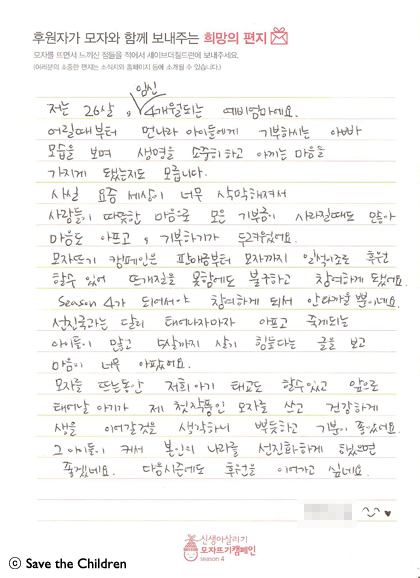 후원자가 모자와 함께 보내주는 희망의 편지
모자를 뜨면서 느끼신 점들을 적어서 세이브더칠드런에 보내주세요.
(여러분의 소중한 편지는 소식지와 홈페이지 등에 소개될 수 있습니다.)
임신
저는 26살, 4개월되는 예비엄마에요.
어릴때부터 먼나라 아이들에게 기부하시는 아빠
모습을 보며 생명을 소중히하고 아끼는 마음을
가지게 됐는지도 모릅니다.
사실 요즘 세상이 너무 삭막해져서
사람들이 따뜻한 마음으로 모은 기부금이 사라질때도 많아
마음도 아프고, 기부하기가 두려웠어요.
모자뜨기 캠페인은 판매금부터 모자까지 일석이조로 후원
할수 있어 뜨개질을 못함에도 불구하고 참여하게 됐어요.
Season 4가 되어서야 참여하게 되서 안타까울 뿐이네요.
선진국과는 달리 태어나자마자 아프고 죽게되는
아이들이 많고 5살까지 살기 힘들다는 글을 보고
마음이 너무 아팠어요.
모자를 뜨는동안 저희아기 태교도 할수있고 앞으로
태어날 아기가 제 첫작품인 모자를 쓰고 건강하게
생을 이어갈것을 생각하니 뿌듯하고 기분이 좋았어요.
그 아이들이 커서 본인의 나라를 선진화하게 했으면
좋겠네요. 다음시즌에도 후원을 이어가고 싶네요.
신생아살리기
모자뜨기캠페인
season 4
ⓒ Save the Children